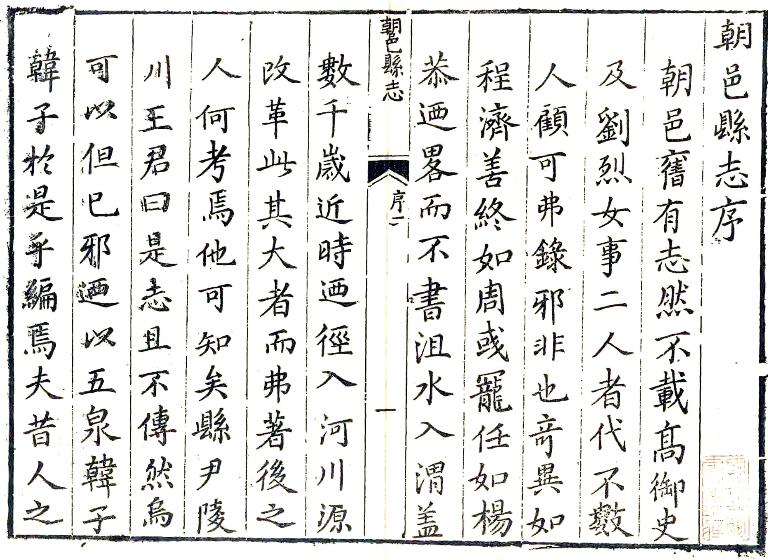 朝邑縣志序
朝邑舊有志然不載髙御史
及劉烈女事二人者代不數
人顧可弗錄邪非也竒異如
程濟善終如周彧寵任如楊
恭迺畧而不書沮水入渭盖
朝邑縣志
序一
一
數千歲近時迺徑入河川源
改革此其大者而弗著後之
人何考焉他可知矣縣尹陵
川王君曰是志且不傳然烏
可以但已邪迺以五泉韓子
韓子於是乎編焉夫昔人之